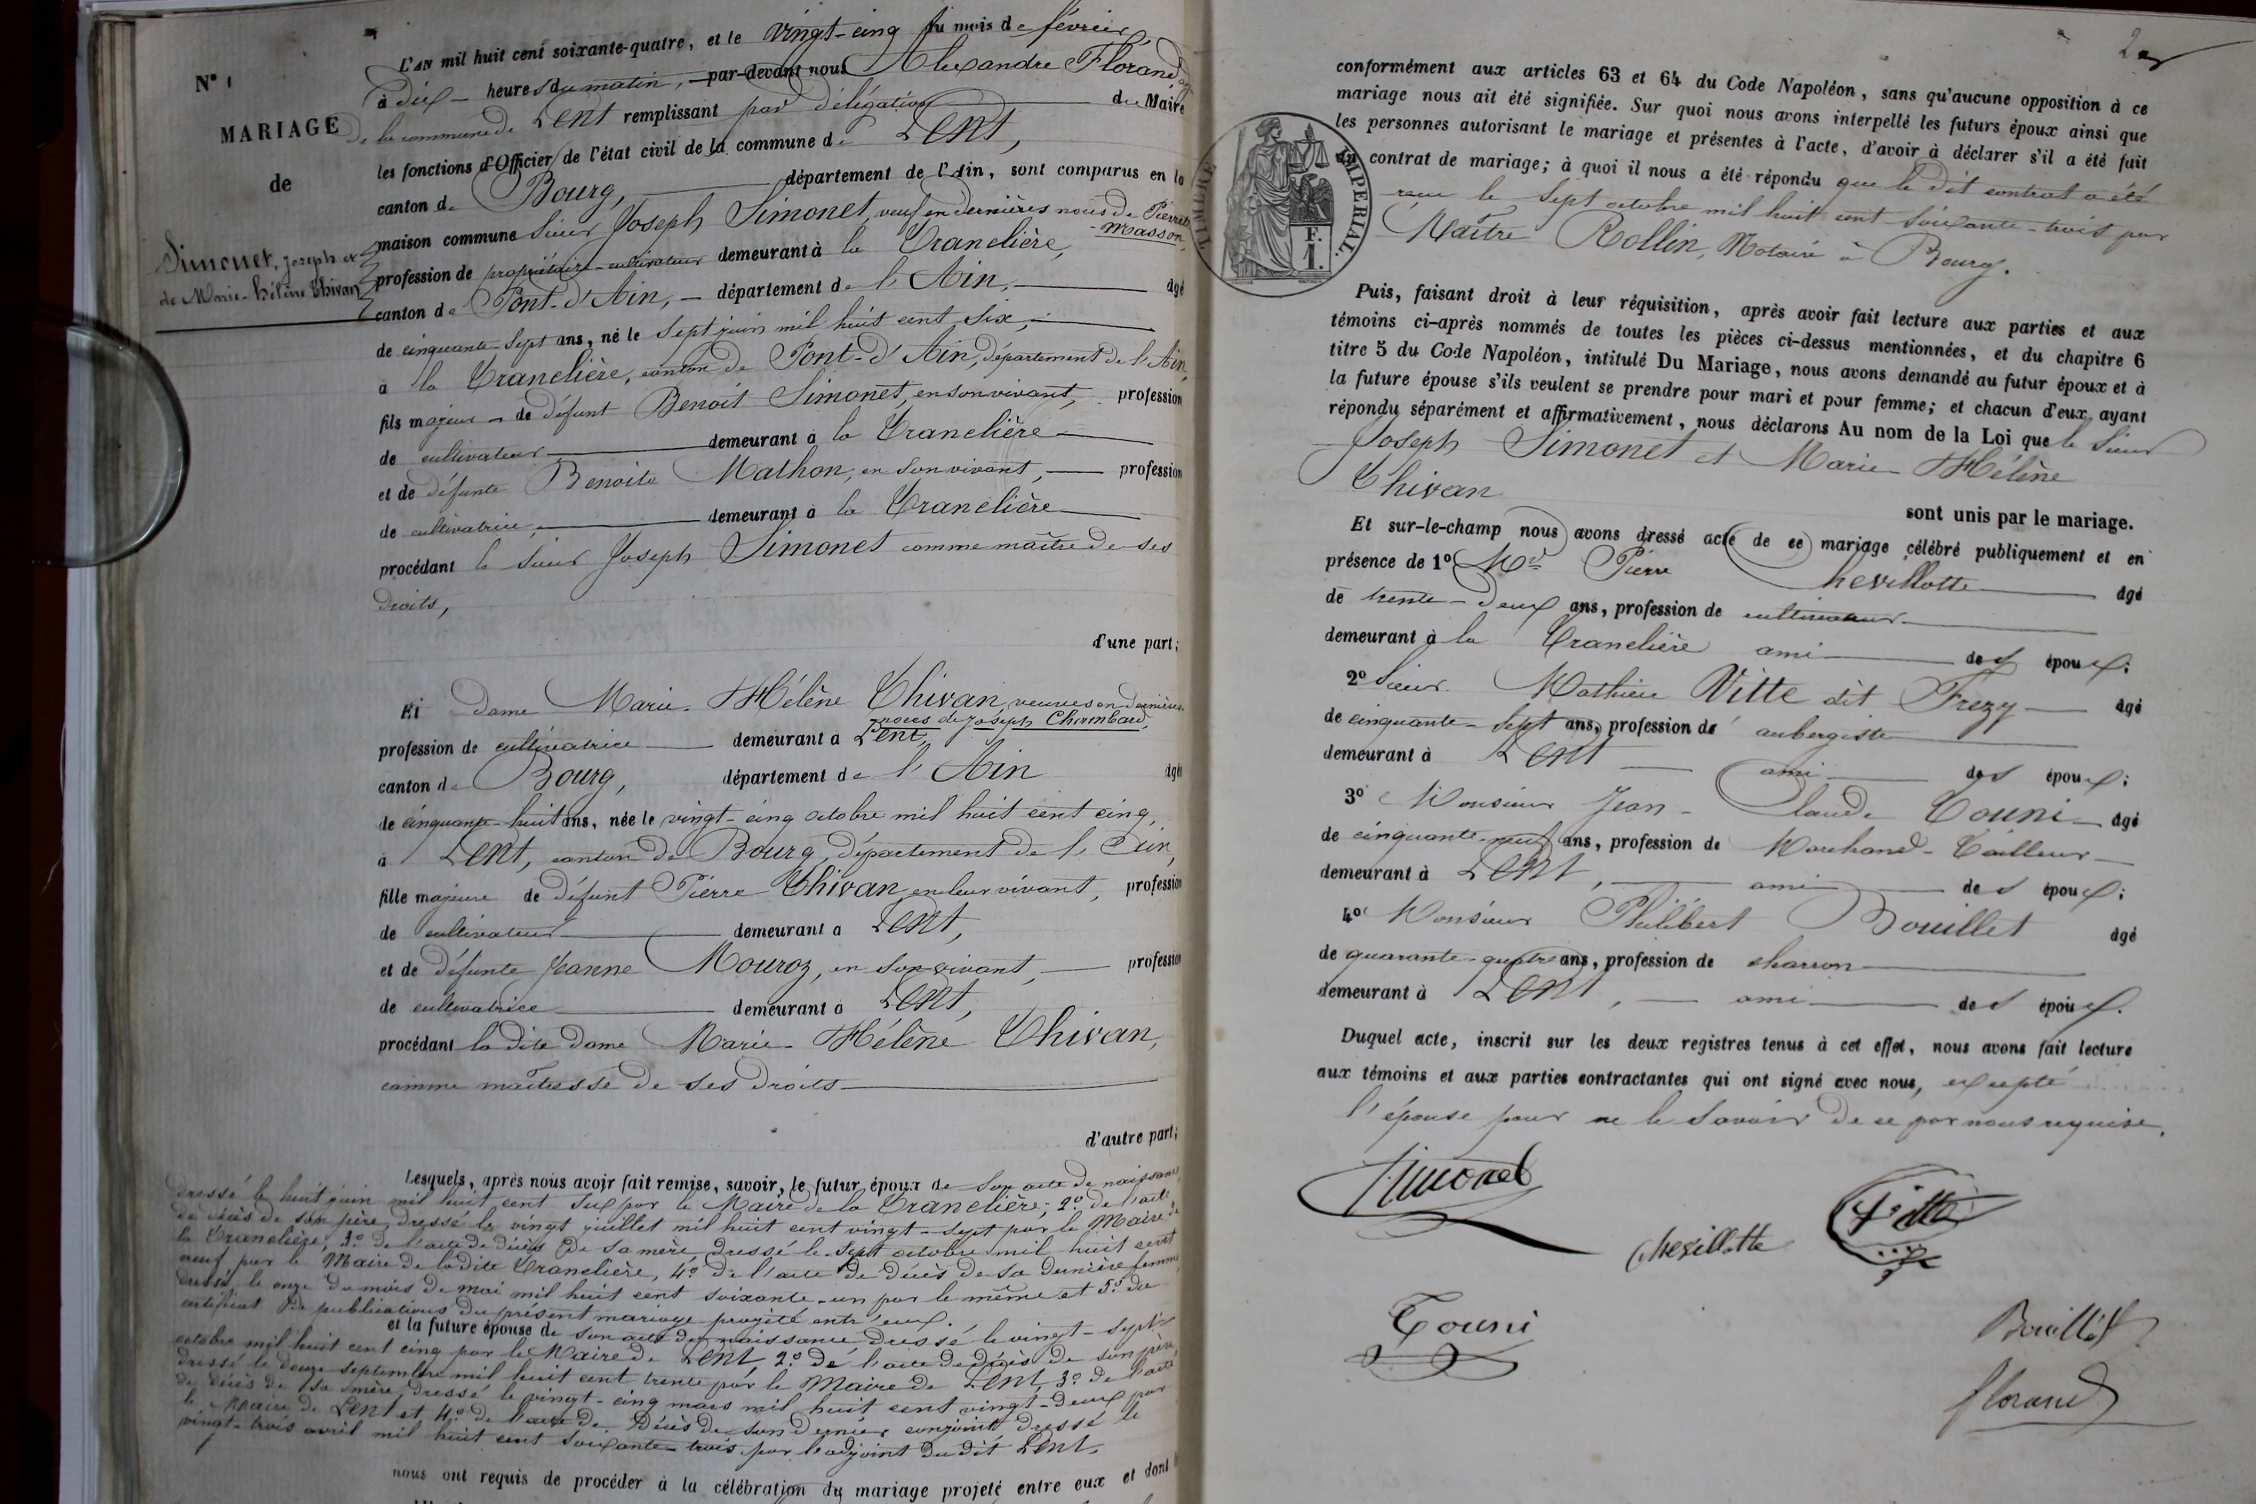 N° 1
MARIAGE
de
Simonet, Joseph et
de Marie-Hélène Chivan
L'AN mil huit cent soixante-quatre, et le vingt-cinq du mois de février
à dix heures du matin, par-devant nous Alexandre Florand
de la commune de Lent remplissant par délégation du Maire
les fonctions d'Officier de l'état civil de la commune de Lent,
canton de Bourg, département de l'Ain, sont comparus en la
maison commune Sieur Joseph Simonet, veuf en dernières noces de Pierrette
Masson,
profession de propriétaire-cultivateur demeurant à la Tranclière,
canton de Pont-d'Ain, département de l'Ain, âgé
de cinquante-sept ans, né le sept juin mil huit cent six,
à la Tranclière, canton de Pont-d'Ain, département de l'Ain,
fils majeur de défunt Benoit Simonet, en son vivant, profession
de cultivateur demeurant à la Tranclière
et de défunte Benoite Mathon, en son vivant, profession
de cultivatrice, demeurant à la Tranclière
procédant le sieur Joseph Simonet comme maître de ses
droits,
d'une part;
Et dame Marie-Hélène Chivan, veuve en dernières
noces de Joseph Chambaud,
profession de cultivatrice demeurant à Lent,
canton de Bourg, département de l'Ain âgée
de cinquante-huit ans, née le vingt-cinq octobre mil huit cent cinq,
à Lent, canton de Bourg, département de l'Ain,
fille majeure de défunt Pierre Chivan en leur vivant, profession
de cultivateur demeurant à Lent,
et de défunte Jeanne Mouroz, en son vivant, profession
de cultivatrice demeurant à Lent,
procédant la dite dame Marie-Hélène Chivan,
comme maîtresse de ses droits
d'autre part;
Lesquels, après nous avoir fait remise, savoir, le futur époux de son acte de naissance
dressé le huit juin mil huit cent six par le Maire de la Tranclière; 2° de l'acte
de décès de son père, dressé le vingt juillet mil huit cent vingt-sept par le Maire de
la Tranclière, 3° de l'acte de décès de sa mère, dressé le sept octobre mil huit cent
neuf, par le Maire de la dite Tranclière, 4° de l'acte de décès de sa dernière femme
dressé le onze du mois de mai mil huit cent soixante-un par le même et 5° du
certificat de publications du présent mariage projeté entr'eux.
et la future épouse de son acte de naissance dressé le vingt-sept
octobre mil huit cent cinq par le Maire de Lent, 2° de l'acte de décès de son père,
dressé le douze septembre mil huit cent trente par le Maire de Lent, 3° de l'acte
de décès de sa mère, dressé le vingt-cinq mars mil huit cent vingt-deux par
le Maire de Lent et 4° de l'acte de décès de son dernier conjoint dressé le
vingt-trois avril mil huit cent soixante-trois par l'adjoint du dit Lent.
nous ont requis de procéder à la célébration du mariage projeté entre eux et dont
conformément aux articles 63 et 64 du Code Napoléon, sans qu'aucune opposition à ce
mariage nous ait été signifiée. Sur quoi nous avons interpellé les futurs époux ainsi que
les personnes autorisant le mariage et présentes à l'acte, d'avoir à déclarer s'il a été fait
un contrat de mariage; à quoi il nous a été répondu que le dit contrat a été
reçu le sept octobre mil huit cent soixante-trois par
Maître Rollin, Notaire à Bourg.
IMPERIAL.
F.
1.
Puis, faisant droit à leur réquisition, après avoir fait lecture aux parties et aux
témoins ci-après nommés de toutes les pièces ci-dessus mentionnées, et du chapitre 6
titre 5 du Code Napoléon, intitulé Du Mariage, nous avons demandé au futur époux et à
la future épouse s'ils veulent se prendre pour mari et pour femme; et chacun d'eux ayant
répondu séparément et affirmativement, nous déclarons Au nom de la Loi que le Sieur
Joseph Simonet et Marie Hélène
Chivan
sont unis par le mariage.
Et sur-le-champ nous avons dressé acte de ce mariage célébré publiquement et en
présence de 1° Mr Pierre Chevillotte âgé
de trente-deux ans, profession de cultivateur
demeurant à la Tranclière ami des époux;
2° Sieur Mathieu Vitte dit Frezy âgé
de cinquante-sept ans, profession de aubergiste
demeurant à Lent ami des époux;
3° Monsieur Jean-Claude Touni âgé
de cinquante-neuf ans, profession de Marchand-Tailleur
demeurant à Lent, ami des époux;
4° Monsieur Philibert Bouillet âgé
de quarante-quatre ans, profession de charron
demeurant à Lent, ami des époux.
Duquel acte, inscrit sur les deux registres tenus à cet effet, nous avons fait lecture
aux témoins et aux parties contractantes qui ont signé avec nous, excepté
l'épouse pour ne le savoir de ce par nous requise.
Simonet
Chevillotte
Vitte
Touni
Bouillet
Florand